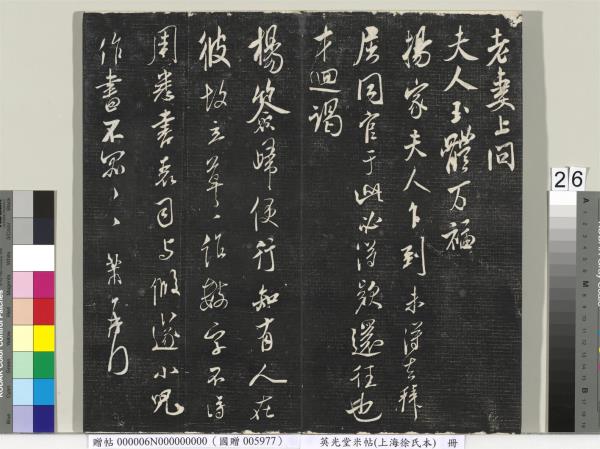 老妻上問
夫人玉體万福
楊家夫人乍到未得去拜
居同官于此必得款還往也
才迴謁
楊 歸便行知有人在
彼故立草々作數字不得
周悉書表司与 遂小兒
作書不罪々々 芾頓首
26
贈帖 000006N000000000（國贈 005977）
英光堂米帖(上海徐氏本) 冊